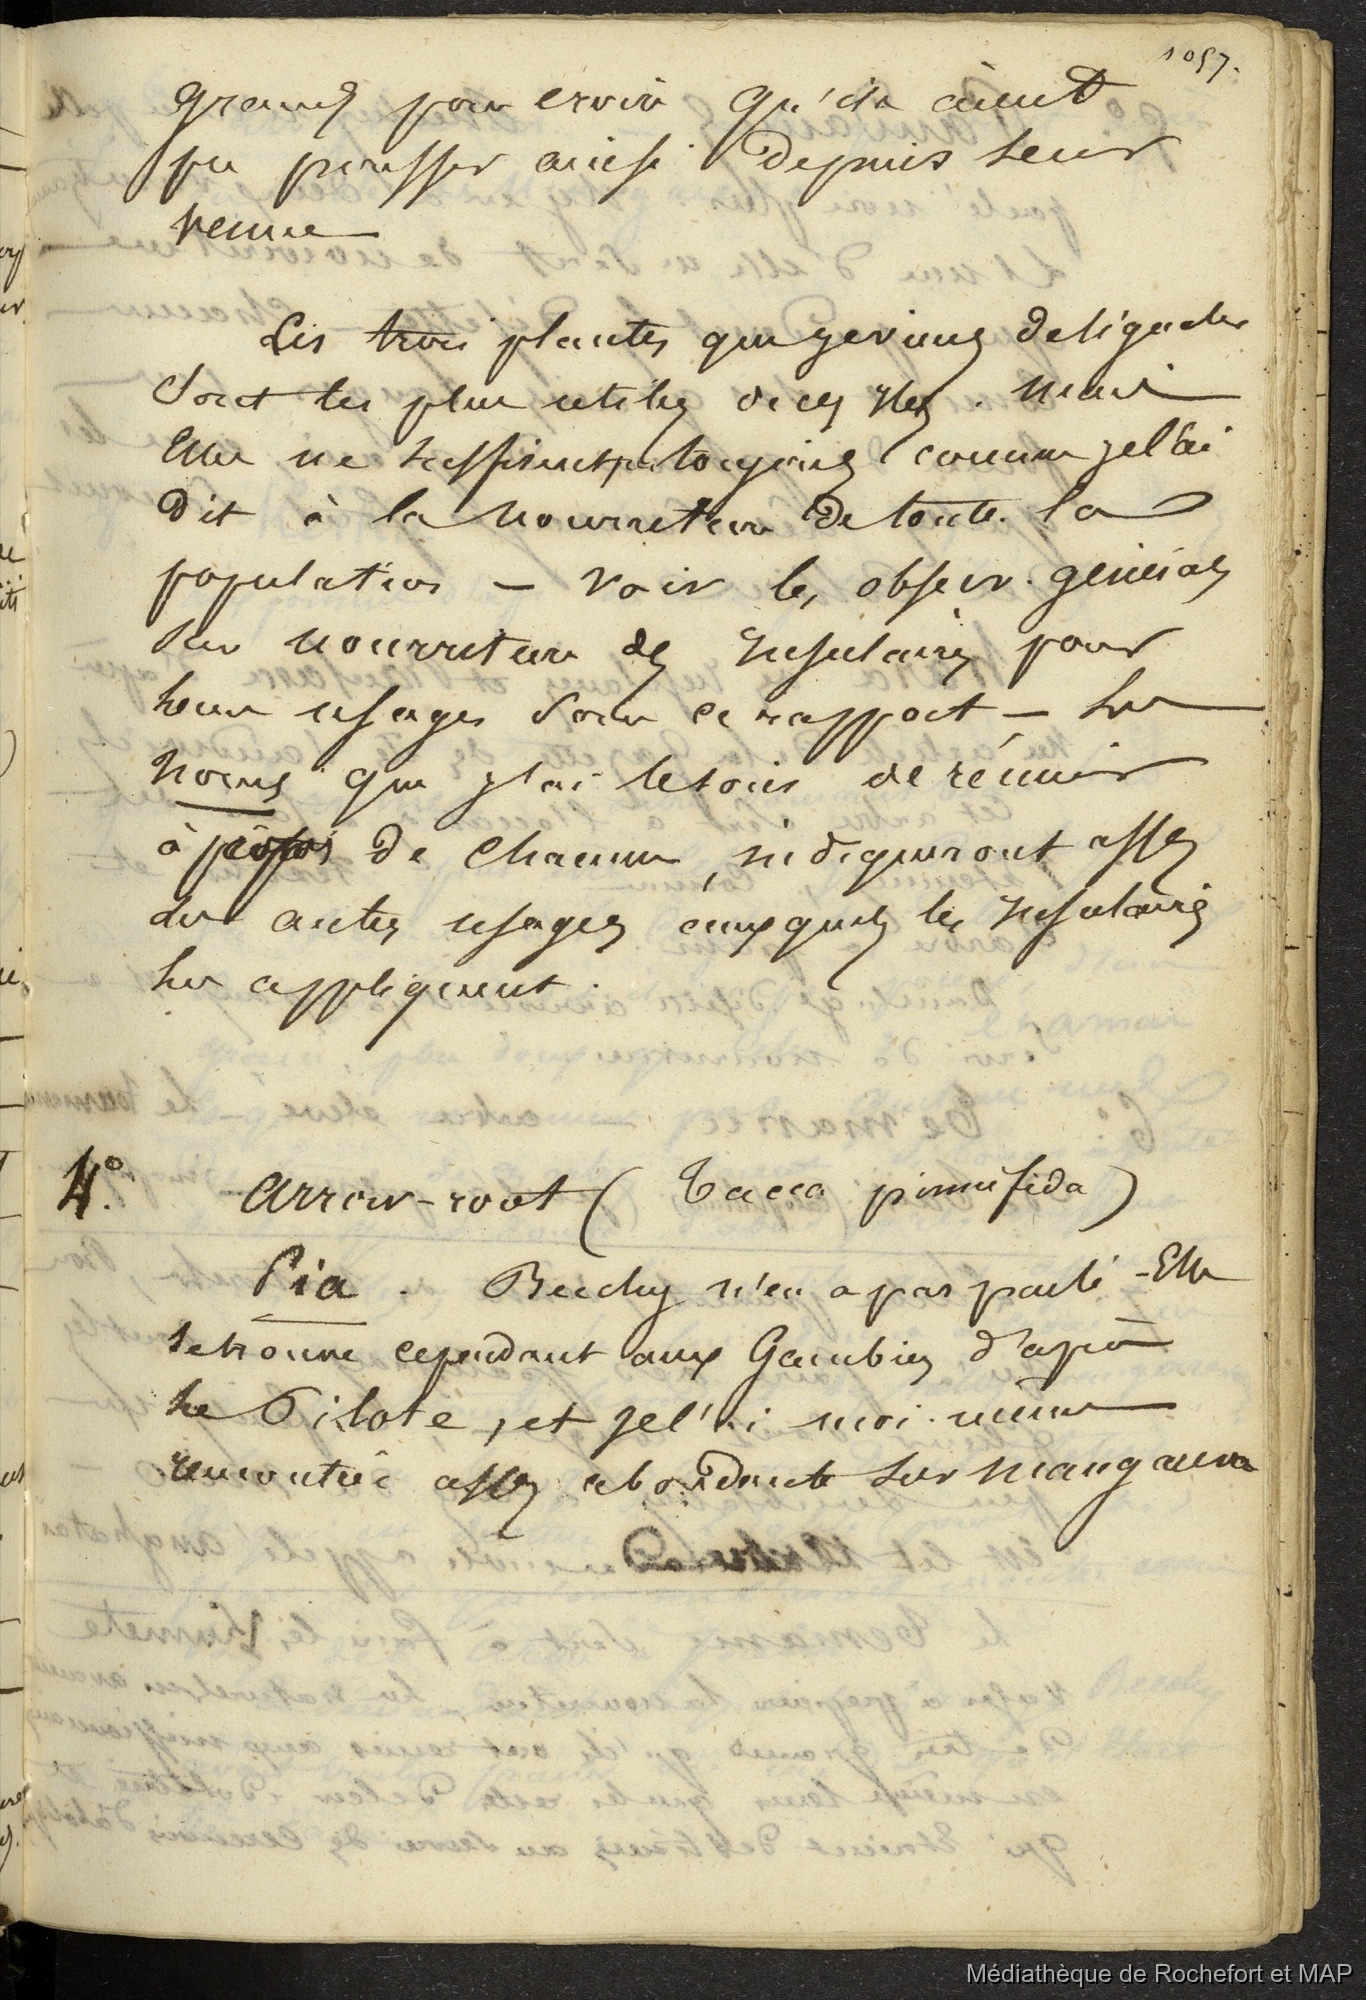 1057.
grands pour croire qu'ils aient
pu pousser ainsi depuis leur
venue
Les trois plantes que je viens de signaler
sont les plus utiles de ces iles. mais
elles ne suffisent pas toujours comme je l'ai
dit à la nourriture de toute la
population — voir les observ. générales
sur nourriture des insulaires pour
leurs usages sous ce rapport — Les
noms que j'ai le soin de réunir
à propos de chacune, indiqueront assez
les autres usages auxquels les insulaires
les appliquent.
4° Arrow-root (Tacca pinnifida)
Pia. Beechey n'en a pas parlé - Elle
se trouve cependant aux Gambiers d'après
le Pilote, et je l'ai moi-même
rencontrée assez abondante sur mangareva
Médiathèque de Rochefort et MAP